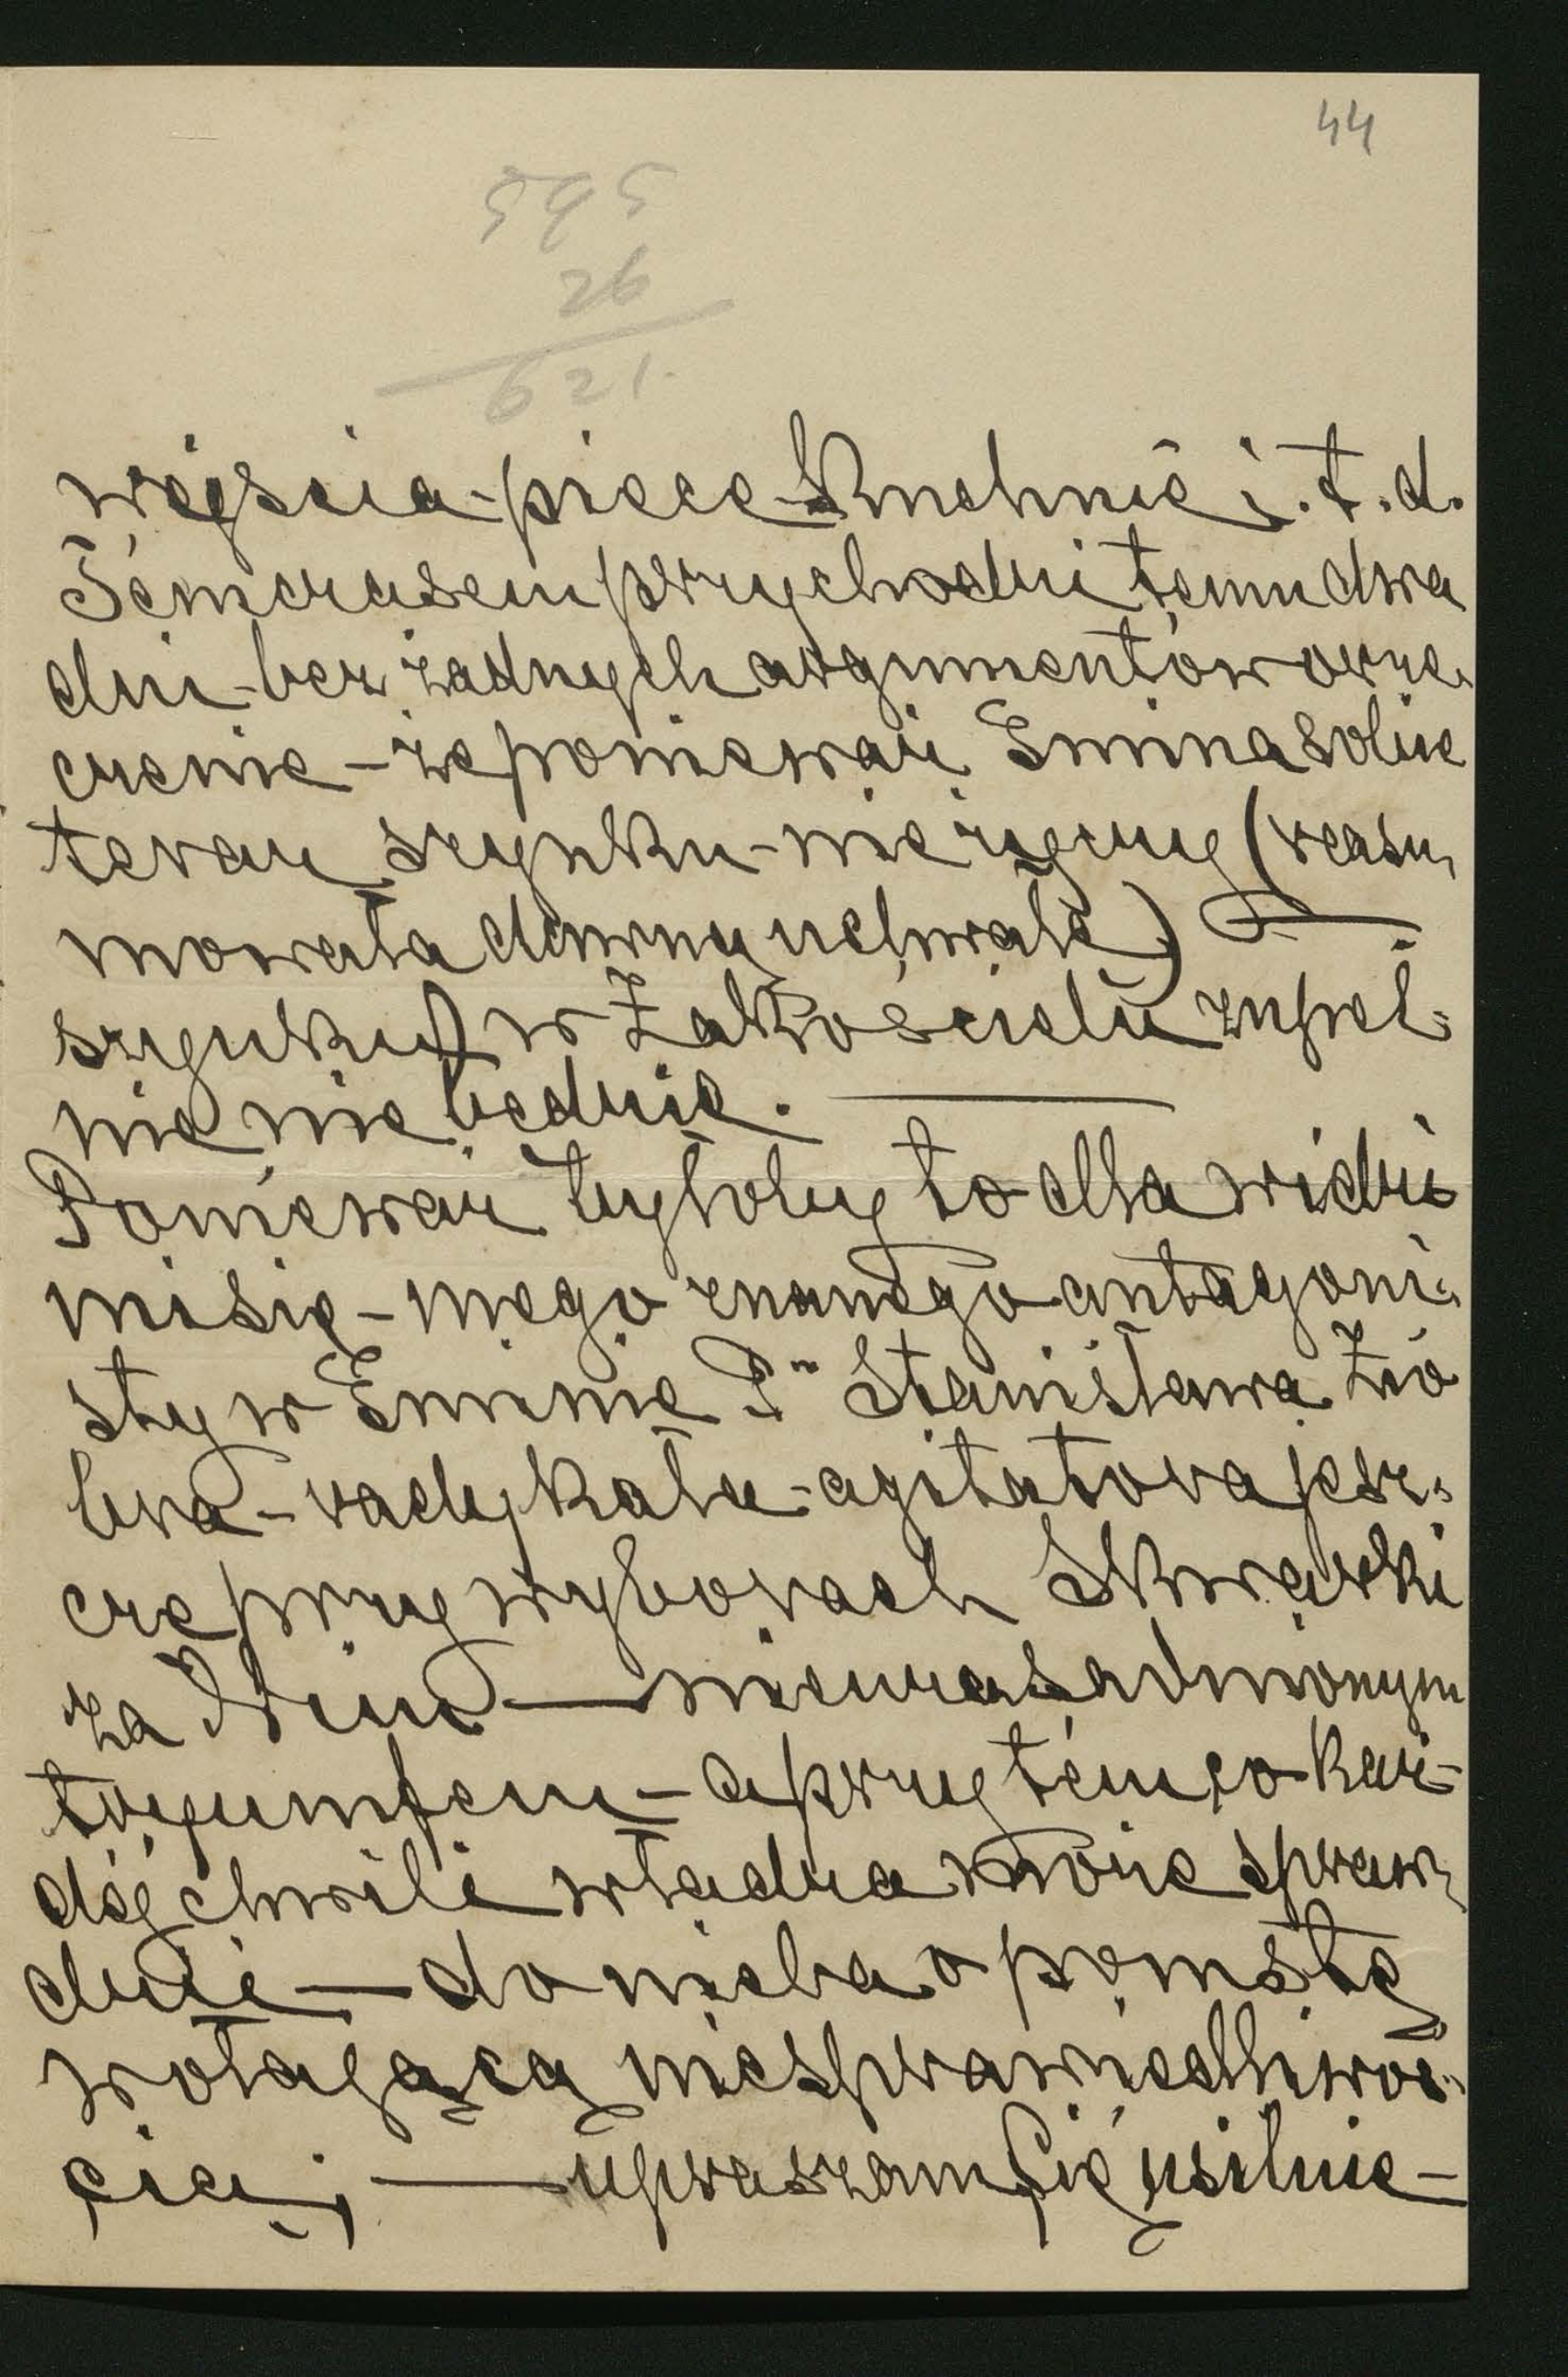 44
595
26
621.
wejścia - piece - Kuchnie i.t.d.
Témczasem przychodzi temu dwa
dni - bez żadnych argumentów orze-
czenie - że ponieważ Gmina sobie
teraz szynku - nie życzy (reasu-
mowała dawną uchwałę)
szynku w Zakościelu zupeł-
nie nie będzie.
Ponieważ byłoby to dla widzi
misię - mego znanego antagoni-
sty w Gminie Pa Stanisława Zio
bra - radykała - agitatora jesz-
cze przy wyborach Skwarki
za Nim — nieuzasadnionym
tryumfem - a przy tém co każ-
déj chwili władza może spraw-
dzić — do nieba o pomstę
wołającą niesprawiedliwoś-
cią; — upraszam Cię usilnie -